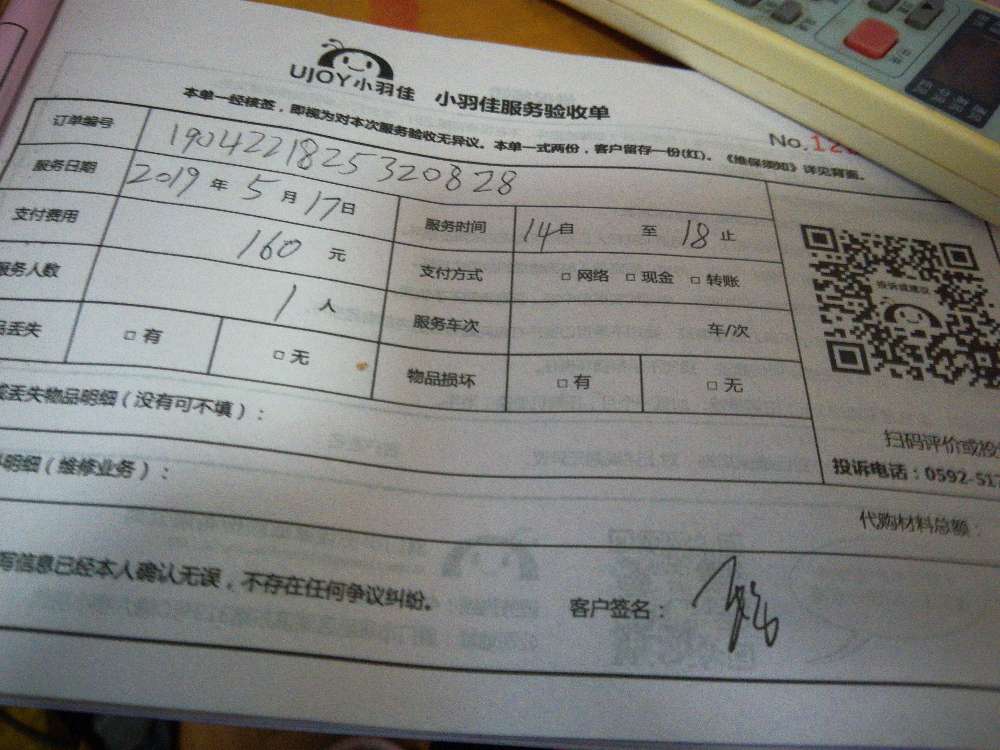 UJOY小羽佳 小羽佳服务验收单
本单一经核签，即视为对本次服务验收无异议。本单一式两份，客户留存一份(红)。《维保须知》详见背面。
No.12
订单编号 190422182532082​8
服务日期 2019 年 5 月 17 日 服务时间 14 自 至 18 止
支付费用 160 元 支付方式 □ 网络 □ 现金 □ 转账
服务人数 1 人 服务车次 车/次
品丢失 □ 有 □ 无 物品损坏 □ 有 □ 无
投诉或建议
扫码评价或投
投诉电话：0592-517
丢失物品明细（没有可不填）：
明细（维修业务）：
代购材料总额：
写信息已经本人确认无误，不存在任何争议纠纷。
客户签名：